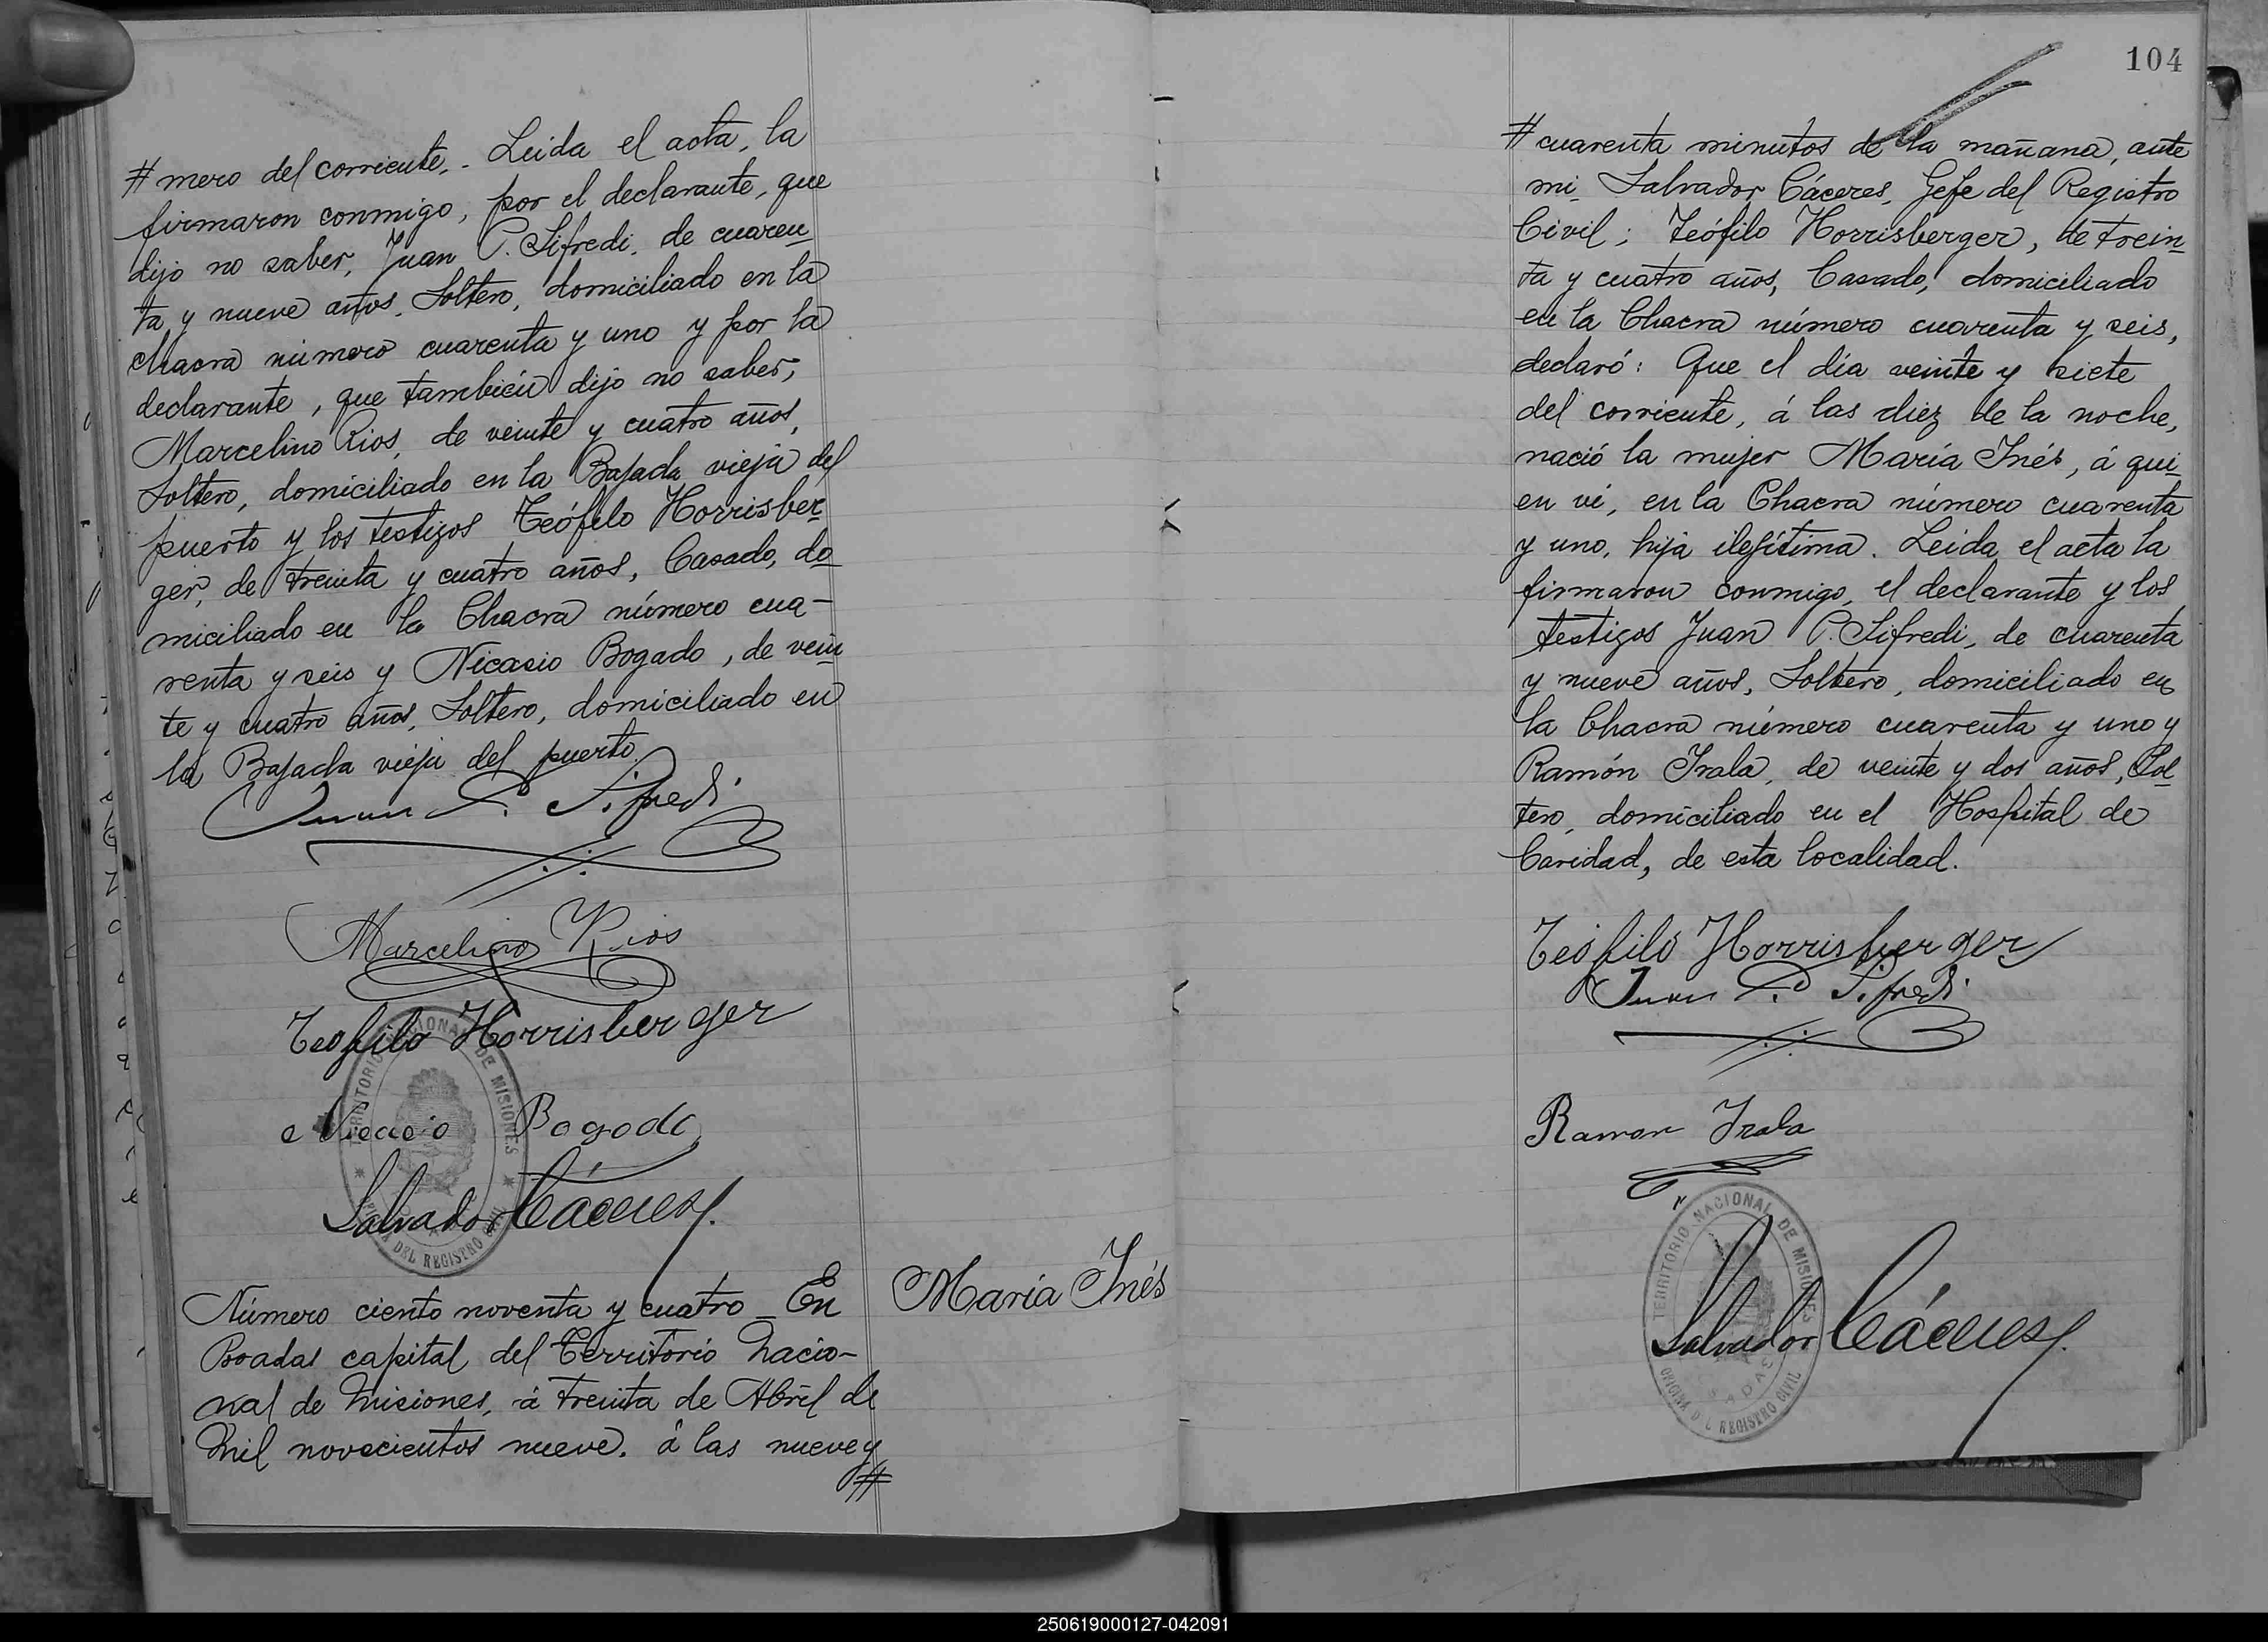 # mero del corriente. - Leida el acta, la
firmaron conmigo, por el declarante, que
dijo no saber, Juan P. Sifredi, de cuaren
ta y nueve años, Soltero, domiciliado en la
chacra número cuarenta y uno y por la
declarante, que también dijo no saber,
Marcelino Rios, de veinte y cuatro años,
Soltero, domiciliado en la Bajada vieja del
puerto y los testigos Teófilo Horrisber
ger, de treinta y cuatro años, Casado, do
miciliado en la Chacra número cua-
renta y seis y Nicasio Bogado, de vein
te y cuatro años, Soltero, domiciliado en
la Bajada vieja del puerto.
Juan P. Sifredi
Marcelino Rios
Teofilo Horrisberger
Nicacio Bogado
Salvador Cáceres
TERRITORIO NACIONAL DE MISIONES
OFICINA DEL REGISTRO CIVIL
Número ciento noventa y cuatro - En
Posadas capital del Territorio Nacio-
nal de Misiones, á treinta de Abril de
Mil novecientos nueve, á las nueve y
#
María Inés
104
# cuarenta minutos de la mañana, ante
mi, Salvador Cáceres, Gefe del Registro
Civil; Teófilo Horrisberger, de trein
ta y cuatro años, Casado, domiciliado
en la Chacra número cuarenta y seis,
declaró: Que el día veinte y siete
del corriente, á las diez de la noche,
nació la mujer María Inés, á qui
en ví, en la Chacra número cuarenta
y uno, hija ilegítima. Leida el acta la
firmaron conmigo, el declarante y los
testigos Juan P. Sifredi, de cuarenta
y nueve años, Soltero, domiciliado en
la Chacra número cuarenta y uno y
Ramón Irala, de veinte y dos años, Sol
tero, domiciliado en el Hospital de
Caridad, de esta localidad.
Teófilo Horrisberger
Juan P. Sifredi
Ramon Irala
TERRITORIO NACIONAL DE MISIONES
POSADAS
OFICINA DEL REGISTRO CIVIL
Salvador Cáceres
250619000127-042091